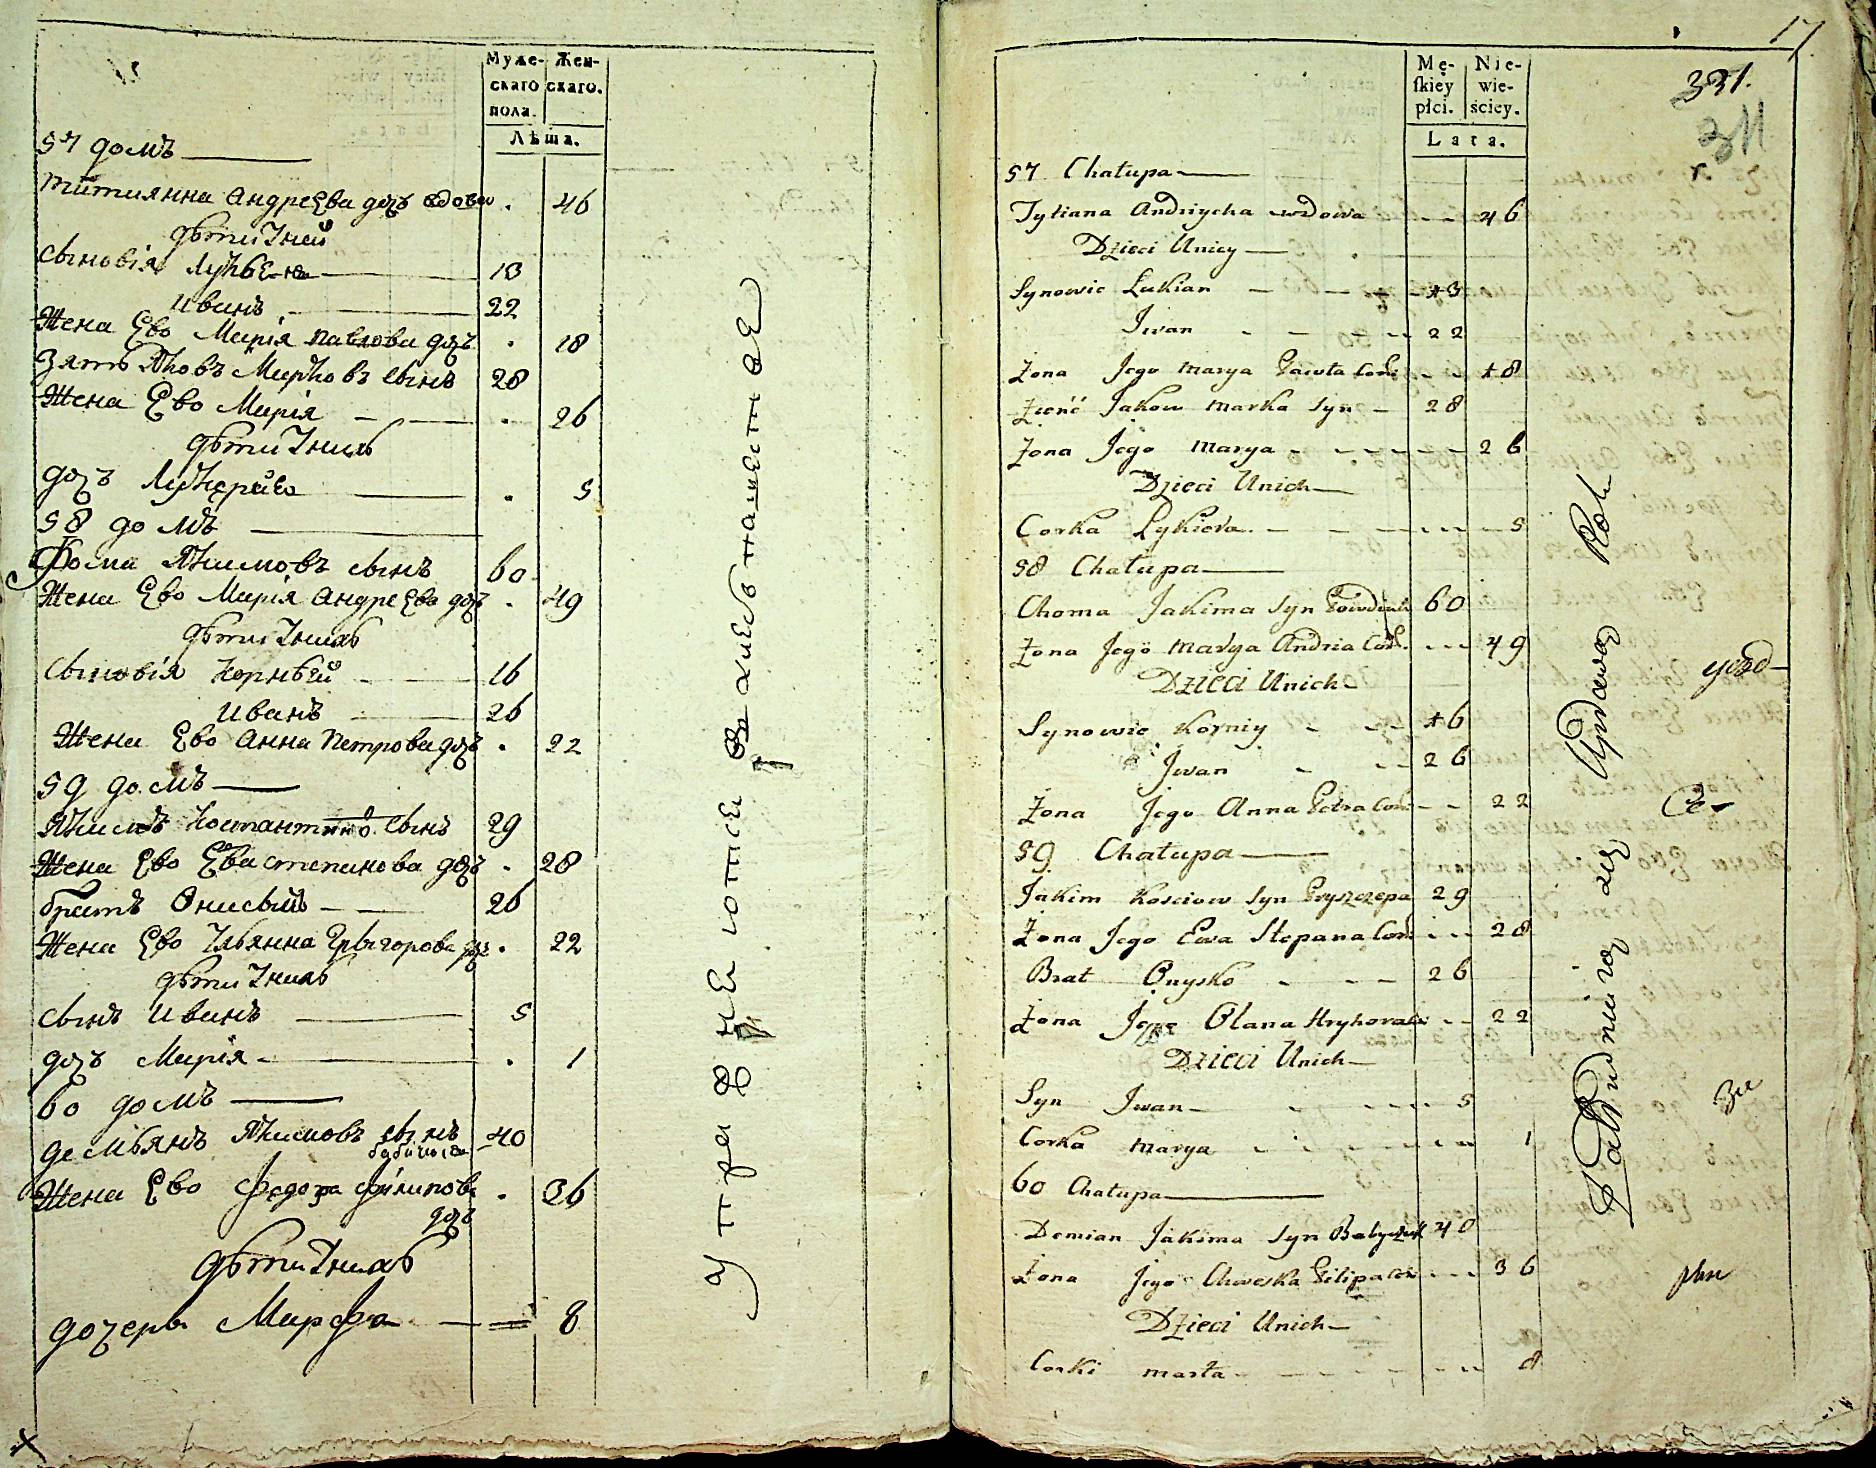 Муже-
скаго
пола.
Жен-
скаго.
Лѣта.
57 домъ
Титиянна Андреева доч вдова . 46
дѣти Уней
Сыновія Лукьєнъ 13
Иванъ 22
Жена Ево Марія Павлова доч . 18
Зять Яковъ Марковъ сынъ 28
Жена Ево Марія . 26
дѣти Унихъ
доч . 5
58 домъ
Фома Якимовъ сынъ 60
Жена Ево Марія Андреева доч . 49
дѣти Унихъ
Сыновія Корнѣй 16
Иванъ 26
Жена Ево Анна Петрова доч . 22
59 домъ
Якимъ сынъ 29
Жена Ево Ева Степанова доч . 28
братъ Онисый 26
Жена Ево Ульянна Грыгорова доч . 22
дѣти Унихъ
сынъ Иванъ 5
доч Марія . 1
60 домъ
Демьянъ Якимовъ сынъ 40
Жена Ево Федора Филипова . 36
доч
дѣти Унихъ
дочерь Марфа 8
17
331.
311
Mę-
skiey
płci.
Nie-
wie-
ściey.
Lata.
57 Chałupa
Tytiana Andriycha wdowa 46
Dzieci Uniey
Synowie Lukian 13
Jwan 22
Żona Jego Marya Pawła Cor: 18
Zienć Jakow Marka Syn 28
Żona Jego Marya 26
Dzieci Unich
Corka Lykiera 5
58 Chałupa
Choma Jakima Syn 60
Żona Jego Marya Andria Cor: 49
Dzieci Unich
Synowie Korniy 16
Jwan 26
Żona Jego Anna Petra Cor: 22
59 Chałupa
Jakim Kosciow Syn Pryszczepa 29
Żona Jego Ewa Stepana Cor: 28
Brat Onysko 26
Żona Jego Olana Hryhora 22
Dzieci Unich
Syn Jwan 5
Corka Marya 1
60 Chałupa
Demian Jakima Syn 40
Żona Jego Chweska Filipa Cor 36
Dzieci Unich
Corki Marta 8